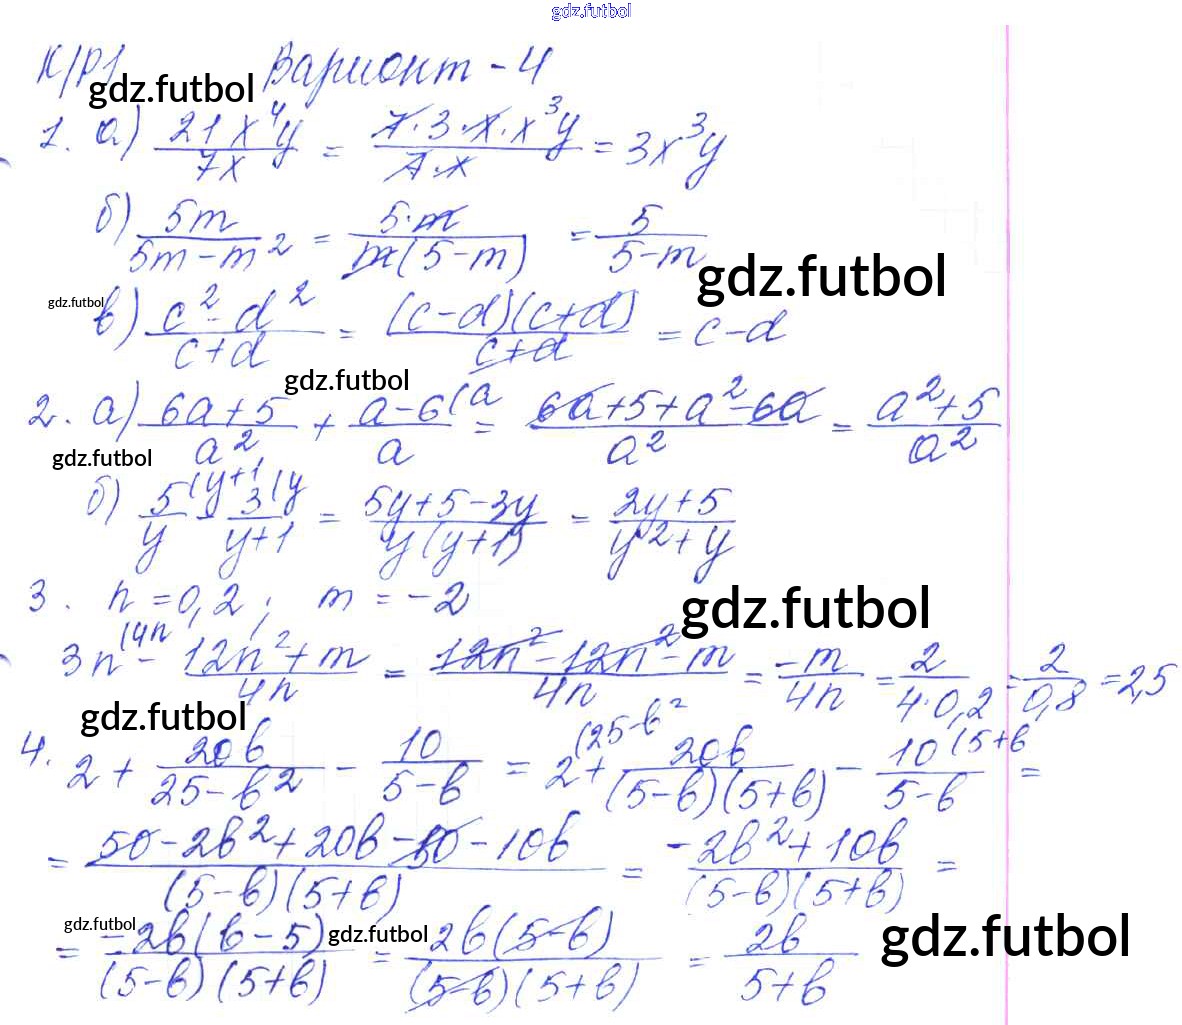 gdz.futbol
К/Р1 Вариант - 4
gdz.futbol
1. а) 21x⁴y/7x = 7·3·x·x³y/7·x = 3x³y
б) 5m/5m-m² = 5·m/m(5-m) = 5/5-m
gdz.futbol
gdz.futbol
в) c²-d²/c+d = (c-d)(c+d)/c+d = c-d
gdz.futbol
2. а) 6a+5/a² + a-6(a/a = 6a+5+a²-6a/a² = a²+5/a²
gdz.futbol
б) 5(y+1/y - 3(y/y+1 = 5y+5-3y/y(y+1) = 2y+5/y²+y
3. n=0,2; m=-2
gdz.futbol
3n(4n - 12n²+m/4n = 12n²-12n²-m/4n = -m/4n = 2/4·0,2 = 2/0,8 = 2,5
gdz.futbol
4. 2 + 20b/25-b² - 10/5-b = 2(25-b² + 20b/(5-b)(5+b) - 10(5+b/5-b =
= 50-2b²+20b-50-10b/(5-b)(5+b) = -2b²+10b/(5-b)(5+b) =
gdz.futbol
gdz.futbol
gdz.futbol
= -2b(b-5)/(5-b)(5+b) = 2b(5-b)/(5-b)(5+b) = 2b/5+b